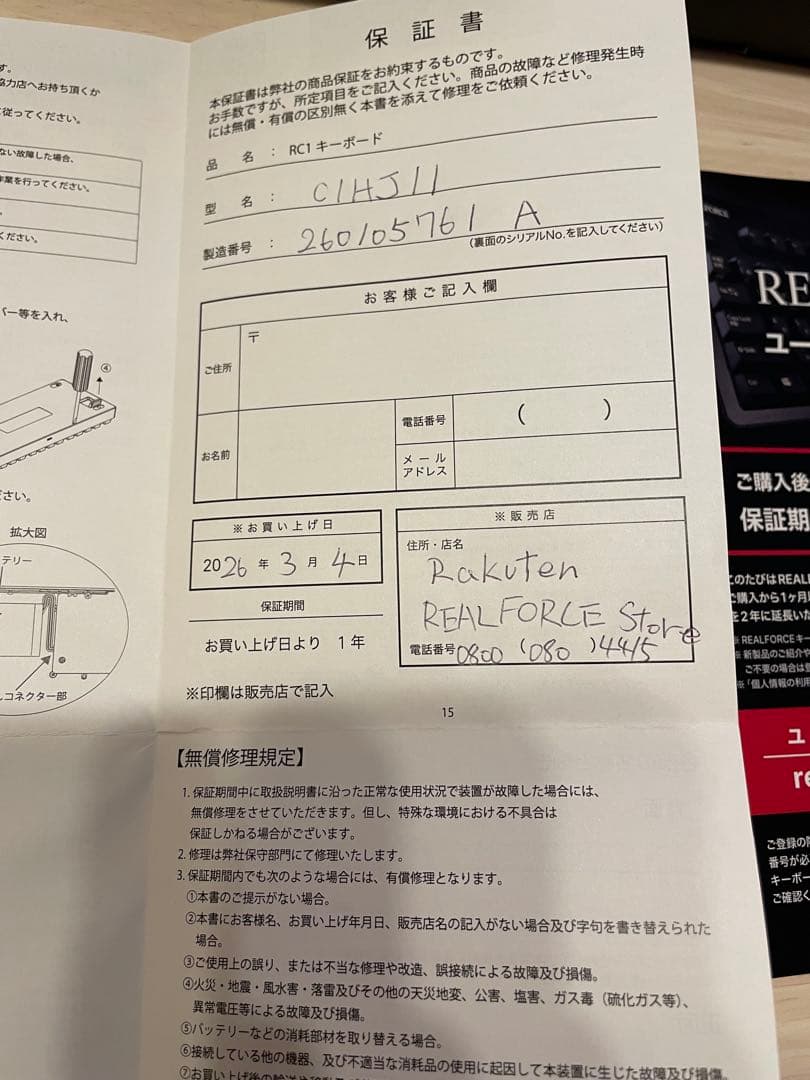 す。
協力店へお持ち頂くか
従ってください。
ない故障した場合、
作業を行ってください。
ください。
バー等を入れ、
④
ださい。
拡大図
テリー
コネクター部
保証書
本保証書は弊社の商品保証をお約束するものです。
お手数ですが、所定項目をご記入ください。商品の故障など修理発生時
には無償・有償の区別無く本書を添えて修理をご依頼ください。
品 名 : RC1 キーボード
型 名 : C1HJ11
製造番号 : 260105761 A
(裏面のシリアルNo.を記入してください)
お客様ご記入欄
ご住所
〒
お名前
電話番号
( )
メール
アドレス
※お買い上げ日
2026 年 3 月 4 日
保証期間
お買い上げ日より 1 年
※印欄は販売店で記入
※販売店
住所・店名
Rakuten
REALFORCE Store
電話番号 0800 (080 )4415
15
【無償修理規定】
1. 保証期間中に取扱説明書に沿った正常な使用状況で装置が故障した場合には、
無償修理をさせていただきます。但し、特殊な環境における不具合は
保証しかねる場合がございます。
2. 修理は弊社保守部門にて修理いたします。
3. 保証期間内でも次のような場合には、有償修理となります。
①本書のご提示がない場合。
②本書にお客様名、お買い上げ年月日、販売店名の記入がない場合及び字句を書き替えられた
場合。
③ご使用上の誤り、または不当な修理や改造、誤接続による故障及び損傷。
④火災・地震・風水害・落雷及びその他の天災地変、公害、塩害、ガス毒（硫化ガス等）、
異常電圧等による故障及び損傷。
⑤バッテリーなどの消耗部材を取り替える場合。
⑥接続している他の機器、及び不適当な消耗品の使用に起因して本装置に生じた故障及び損傷。
REA
ユー
ご購入後
保証期
このたびはREAL
ご購入から1ヶ月以
を2年に延長いた
※ REALFORCEキー
※ 新製品のご紹介や
ご不要の場合は登
※「個人情報の利用
ユ
re
ご登録の際
番号が必
キーボー
ご確認く